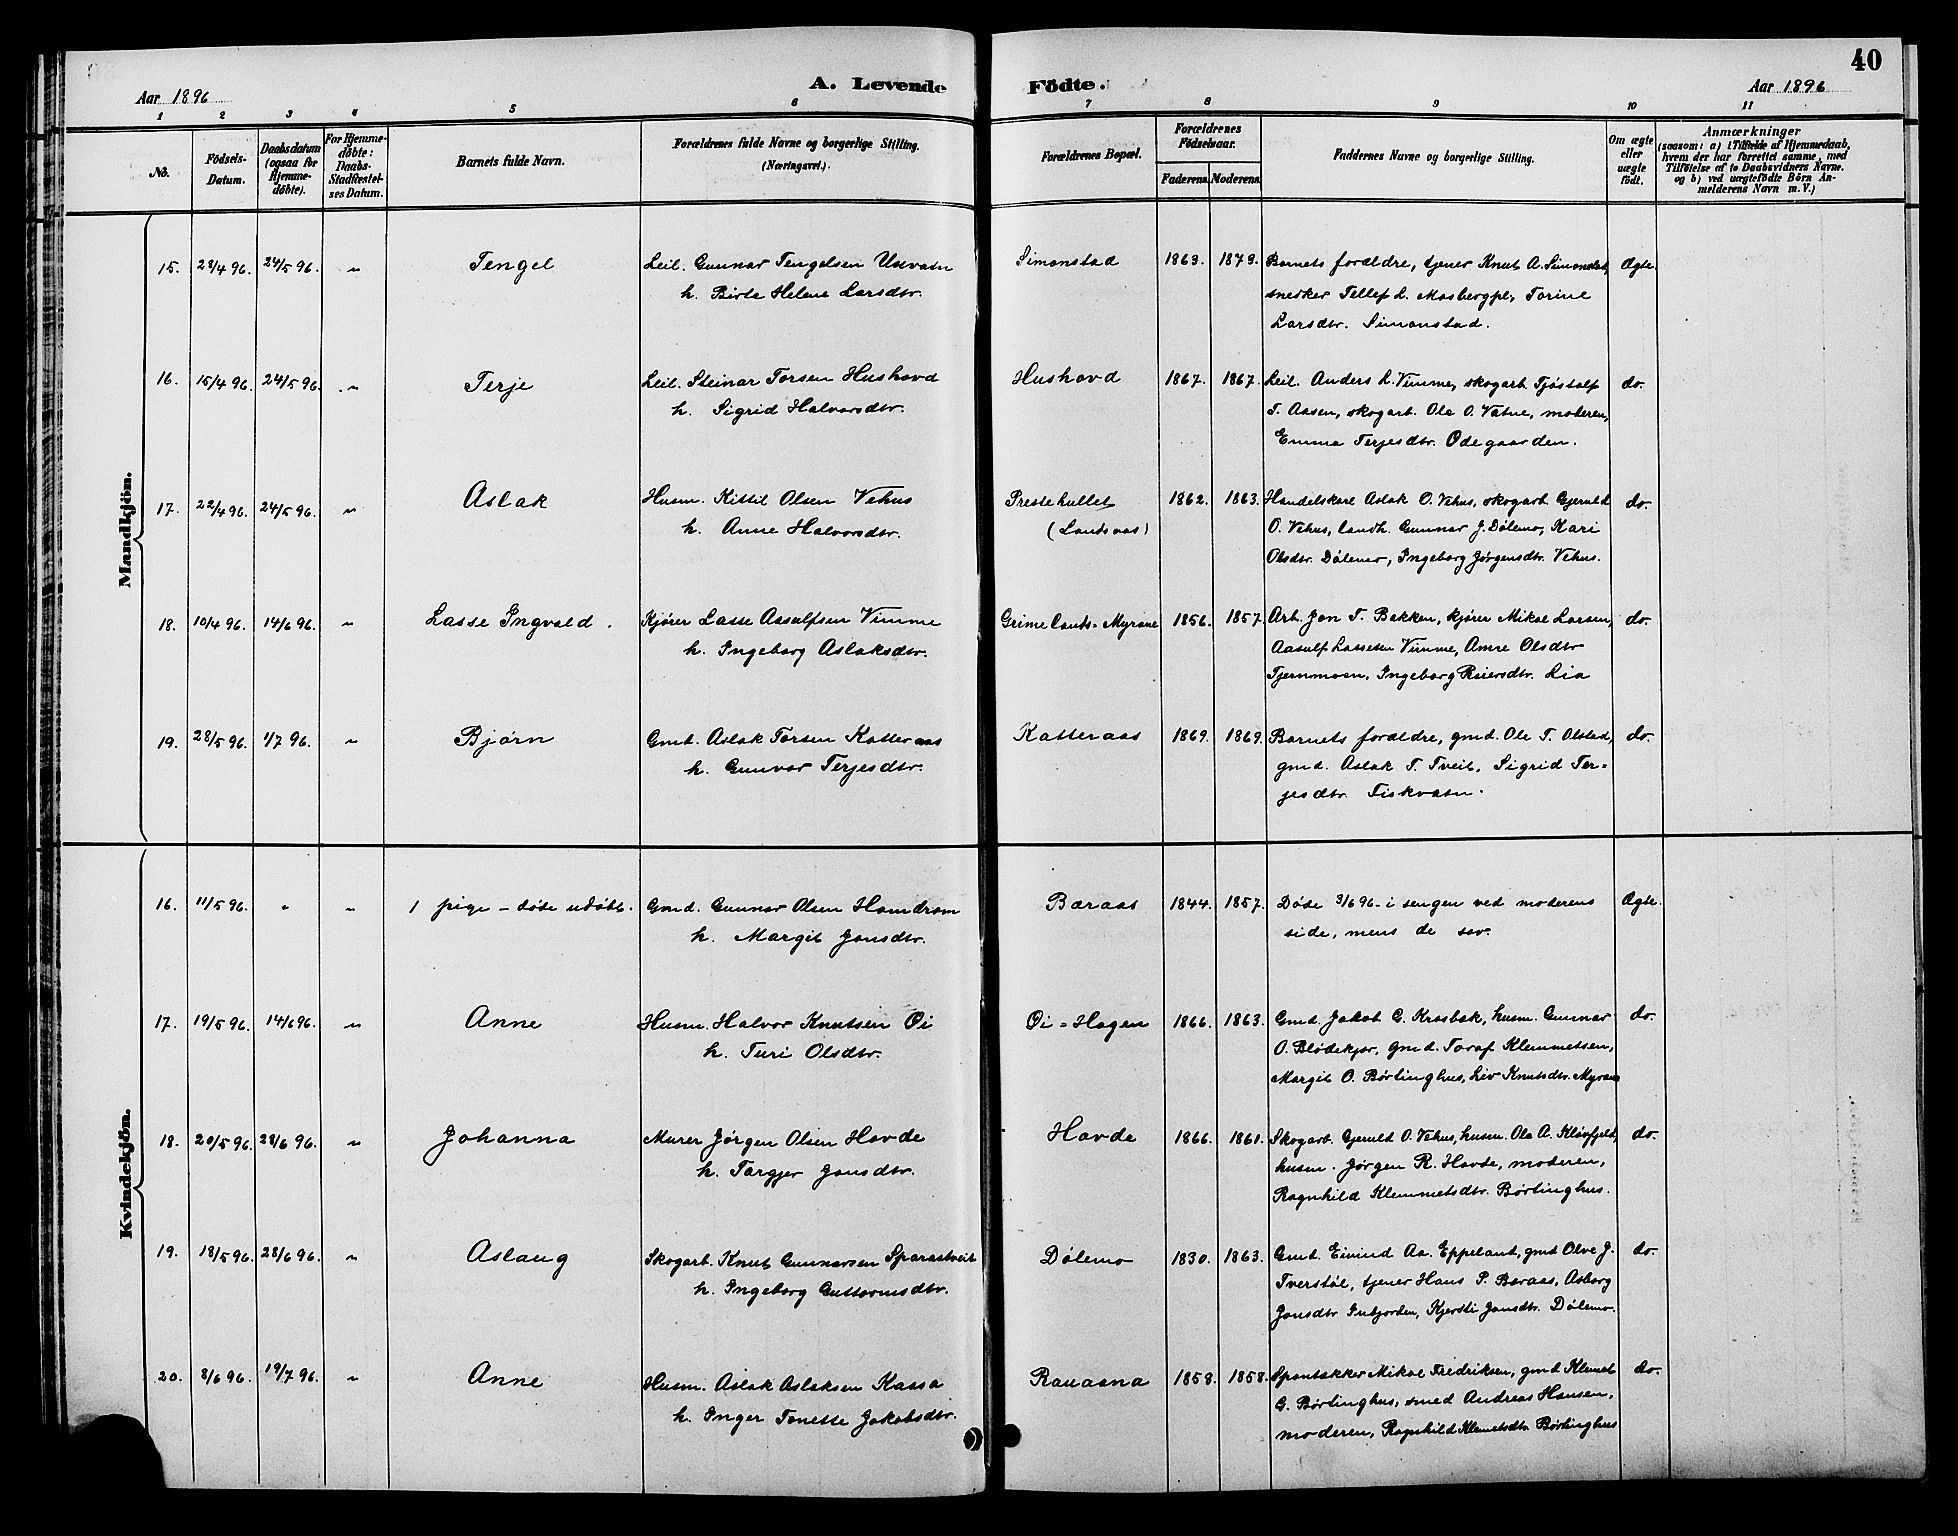 40
Aar 1896
A. Levende Födte.
Aar 1896
1 2 3 4 5 6 7 8 9 10 11
No.
Födsels-Datum.
Daabsdatum (ogsaa for Hjemmedöbte).
For Hjemmedöbte: Daabs-Stadfæstelses Datum.
Barnets fulde Navn.
Forældrenes fulde Navne og borgerlige Stilling. (Næringsvei.)
Forældrenes Bopæl.
Forældrenes Födselsaar.
Faderens. Moderens.
Faddernes Navne og borgerlige Stilling.
Om ægte eller uægte födt.
Anmærkninger
(saasom: a) i Tilfælde af Hjemmedaab, hvem der har forrettet samme, med Tilföielse af to Daabsvidners Navne. og b) ved uægtefödte Börn Anmelderens Navn m. V.)
Mandkjön.
15. 28/4 96. 24/5 96. " Tengel Leil. Gunnar Tengelsen Uxvatn Simonstad 1869. 1879. Barnets forældre, tjener Knut A. Simonstad, Ægte.
h. Birte Helene Larsdtr. snedker Tellef L. Mosbergpl, Torine
Larsdtr. Simonstad.
16. 15/4 96. 24/5 96. " Terje Leil. Steinar Torsen Hushovd Hushovd 1867. 1867. Leil. Anders L. Vimme, skogarb. Tjøstolf do.
h. Sigrid Halvorsdtr. T. Aasen, skogarb. Ole O. Vatne, moderen,
Emma Terjesdtr. Ødegaarden.
17. 22/4 96. 24/5 96. " Aslak Husm. Kittil Olsen Vehus Prestehullet 1862. 1863. Handelskarl Aslak O. Vehus, skogarb. Gjeruld do.
h. Anne Halvorsdtr. (Landsvas) O. Vehus, landh. Gunnar J. Dølemo, Kari
Olsdtr. Dølemo, Ingeborg Jørgensdtr. Vehus.
18. 10/4 96. 14/6 96. " Lasse Ingvald. Kjører Lasse Aasulfsen Vimme Grimelands-Myrane 1856. 1857. Arb. Jon T. Bakken, kjører Mikal Larsen, do.
h. Ingeborg Aslaksdtr. Aasulf Lassesen Vimme, Anne Olsdtr
Tjernmoen, Ingeborg Reiersdtr. Lia
19. 28/5 96. 1/7 96. " Bjørn Gmd. Aslak Torsen Katteraas Katteraas 1869. 1869. Barnets forældre, gmd. Ole T. Olstad, do.
h. Gunvor Terjesdtr. gmd. Aslak T. Tveit, Sigrid Ter-
jesdtr. Fiskvatn.
Kvindekjön.
16. 11/5 96. " " 1 pige - døde udøbt. Gmd. Gunnar Olsen Homdrom Baraas 1844. 1857. Døde 3/6 96 - i sengen ved moderens Ægte.
h. Margit Jonsdtr. side, mens de sov.
17. 19/5 96. 14/6 96. " Anne Husm. Halvor Knutsen Øi Øi-Hagen 1866. 1863. Gmd. Jakob G. Krosbak, husm. Gunnar do.
h. Turi Olsdtr. O. Blødekjær, gmd. Toraf Klemmetsen,
Margit O. Børtinghus, Liv Knutsdtr. Myrane
18. 20/5 96. 28/6 96. " Johanna Murer Jørgen Olsen Hovde Hovde 1866. 1861. Skogarb. Gjeruld O. Vehus, husm. Ole A. Kløvfjeld, do.
h. Torgjer Jonsdtr. husm. Jørgen R. Hovde, moderen,
Ragnhild Klemmetsdtr. Børtinghus.
19. 18/5 96. 28/6 96. " Aslaug Skogarb. Knut Gunnarsen Sparastveit Dølemo 1830. 1863. Gmd. Eivind Aa. Eppeland, gmd Olve J. do.
h. Ingeborg Guttormsdtr. Tverstøl, tjener Hans P. Baraas, Asborg
Jonsdtr Inbjorden, Kjersti Jonsdtr. Dølemo.
20. 8/6 96. 19/7 96. " Anne Husm. Aslak Aslaksen Kassa Rauaana 1858. 1858. Spontakker Mikal Fredriksen, gmd Klemet do.
h. Inger Tonette Jakobsdtr. G. Børtinghus, smed Andreas Hansen,
moderen, Ragnhild Klemetsdtr Børtinghus